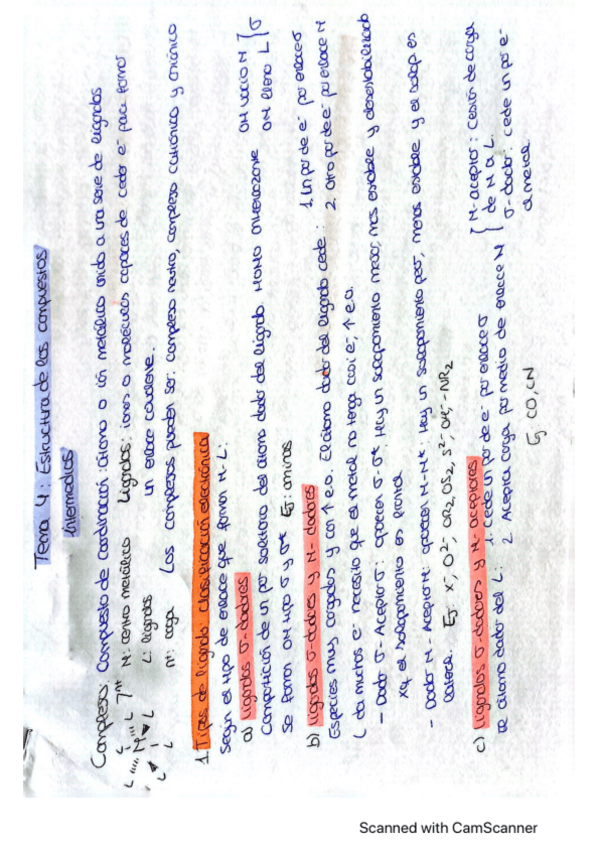 Tema 4: Estructura de los compuestos
intermedios
Complejo: Compuesto de coordinación: átomo o ión metálico unido a una serie de ligandos
L L ⁿ±
L M L
L L
M: centro metálico
L: ligandos
n±: carga
Ligandos: iones o moléculas capaces de ceder e⁻ para formar
un enlace covalente.
Los complejos pueden ser: complejo neutro, complejo catiónico y aniónico
1. Tipos de ligando. Clasificación electrónica
Según el tipo de enlace que forman M-L:
a) Ligandos σ-dadores
Compartición de un par solitario del átomo dador del ligando. HOMO interacciona
OM vacío M
OM lleno L } σ
Se forman OM tipo σ y σ* Ej: aminas
b) Ligandos σ-dadores y π-dadores
Especies muy cargadas y con ↑ e.o. El átomo dador del ligando cede:
1. Un par de e⁻ por enlace σ
2. Otro par de e⁻ por enlace π
L da muchos e⁻: necesito que el metal no tenga casi e⁻, ↑ e.o.
- Dador σ - Aceptor σ: aparecen σ-σ*. Hay un solapamiento mejor, más estable y desestabilizado
xq el solapamiento es frontal
- Dador π - Aceptor π: aparecen π-π*: Hay un solapamiento peor, menos estable y el solap es
lateral. Ej: X⁻, O²⁻, OR₂, OS₂, S²⁻, OH⁻, -NR₂
c) Ligandos σ-dadores y π-aceptores
El átomo dador del L:
1. Cede un par de e⁻ por enlace σ
2. Acepta carga por medio de enlace π
{ π-aceptor: Cesión de carga
de M a L.
σ-dador: cede un par e⁻
al metal.
Ej CO, CN
Scanned with CamScanner